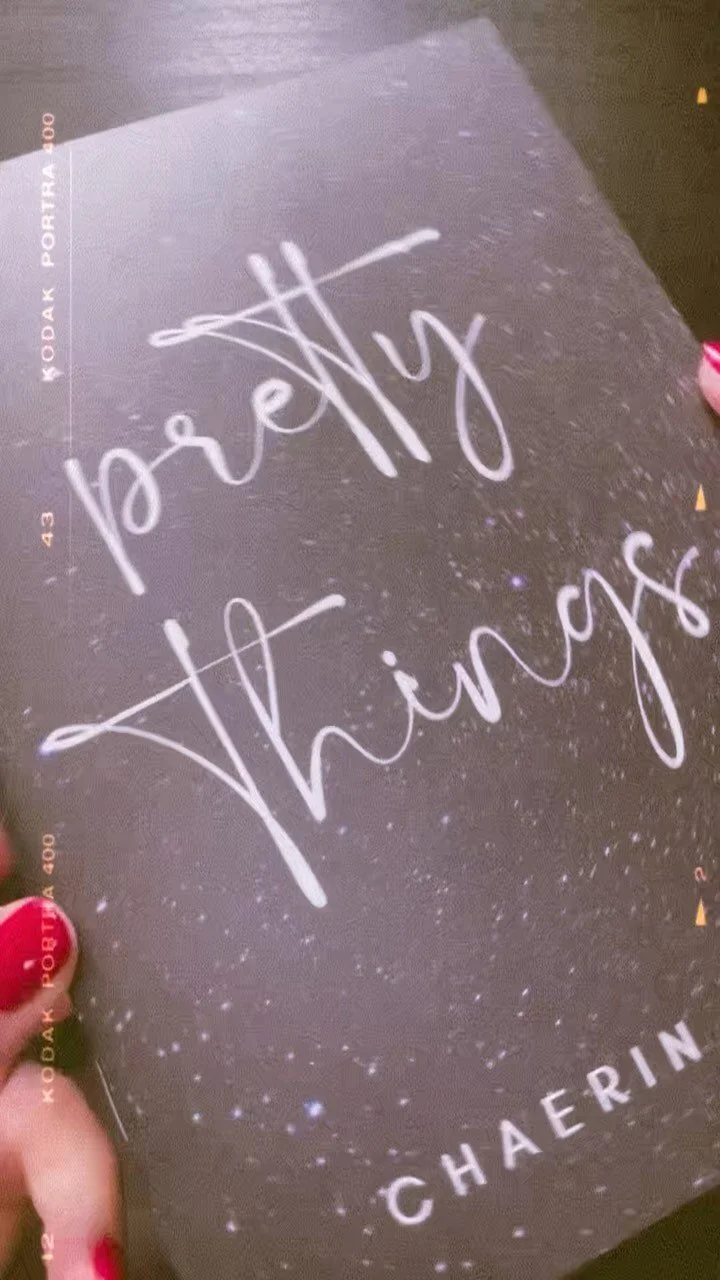 pretty
things
CHAERIN
KODAK PORTRA 400
43
KODAK PORTRA 400
12
2